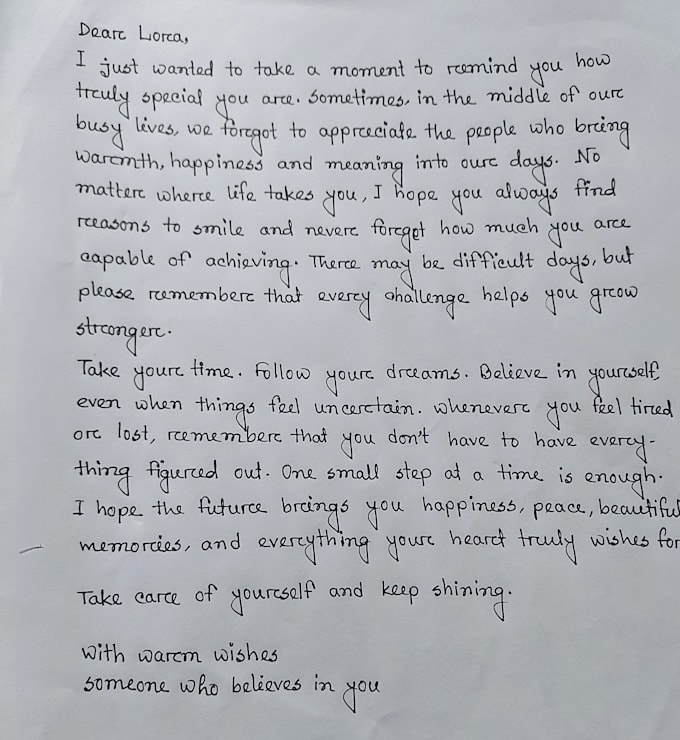 Dear Lorca,
I just wanted to take a moment to remind you how
truly special you are. Sometimes, in the middle of our
busy lives, we forgot to appreciate the people who bring
warmth, happiness and meaning into our days. No
matter where life takes you, I hope you always find
reasons to smile and never forget how much you are
capable of achieving. There may be difficult days, but
please remember that every challenge helps you grow
stronger.
Take your time. Follow your dreams. Believe in yourself,
even when things feel uncertain. Whenever you feel tired
or lost, remember that you don't have to have every-
thing figured out. One small step at a time is enough.
I hope the future brings you happiness, peace, beautiful
memories, and everything your heart truly wishes for
Take care of yourself and keep shining.
With warm wishes
someone who believes in you